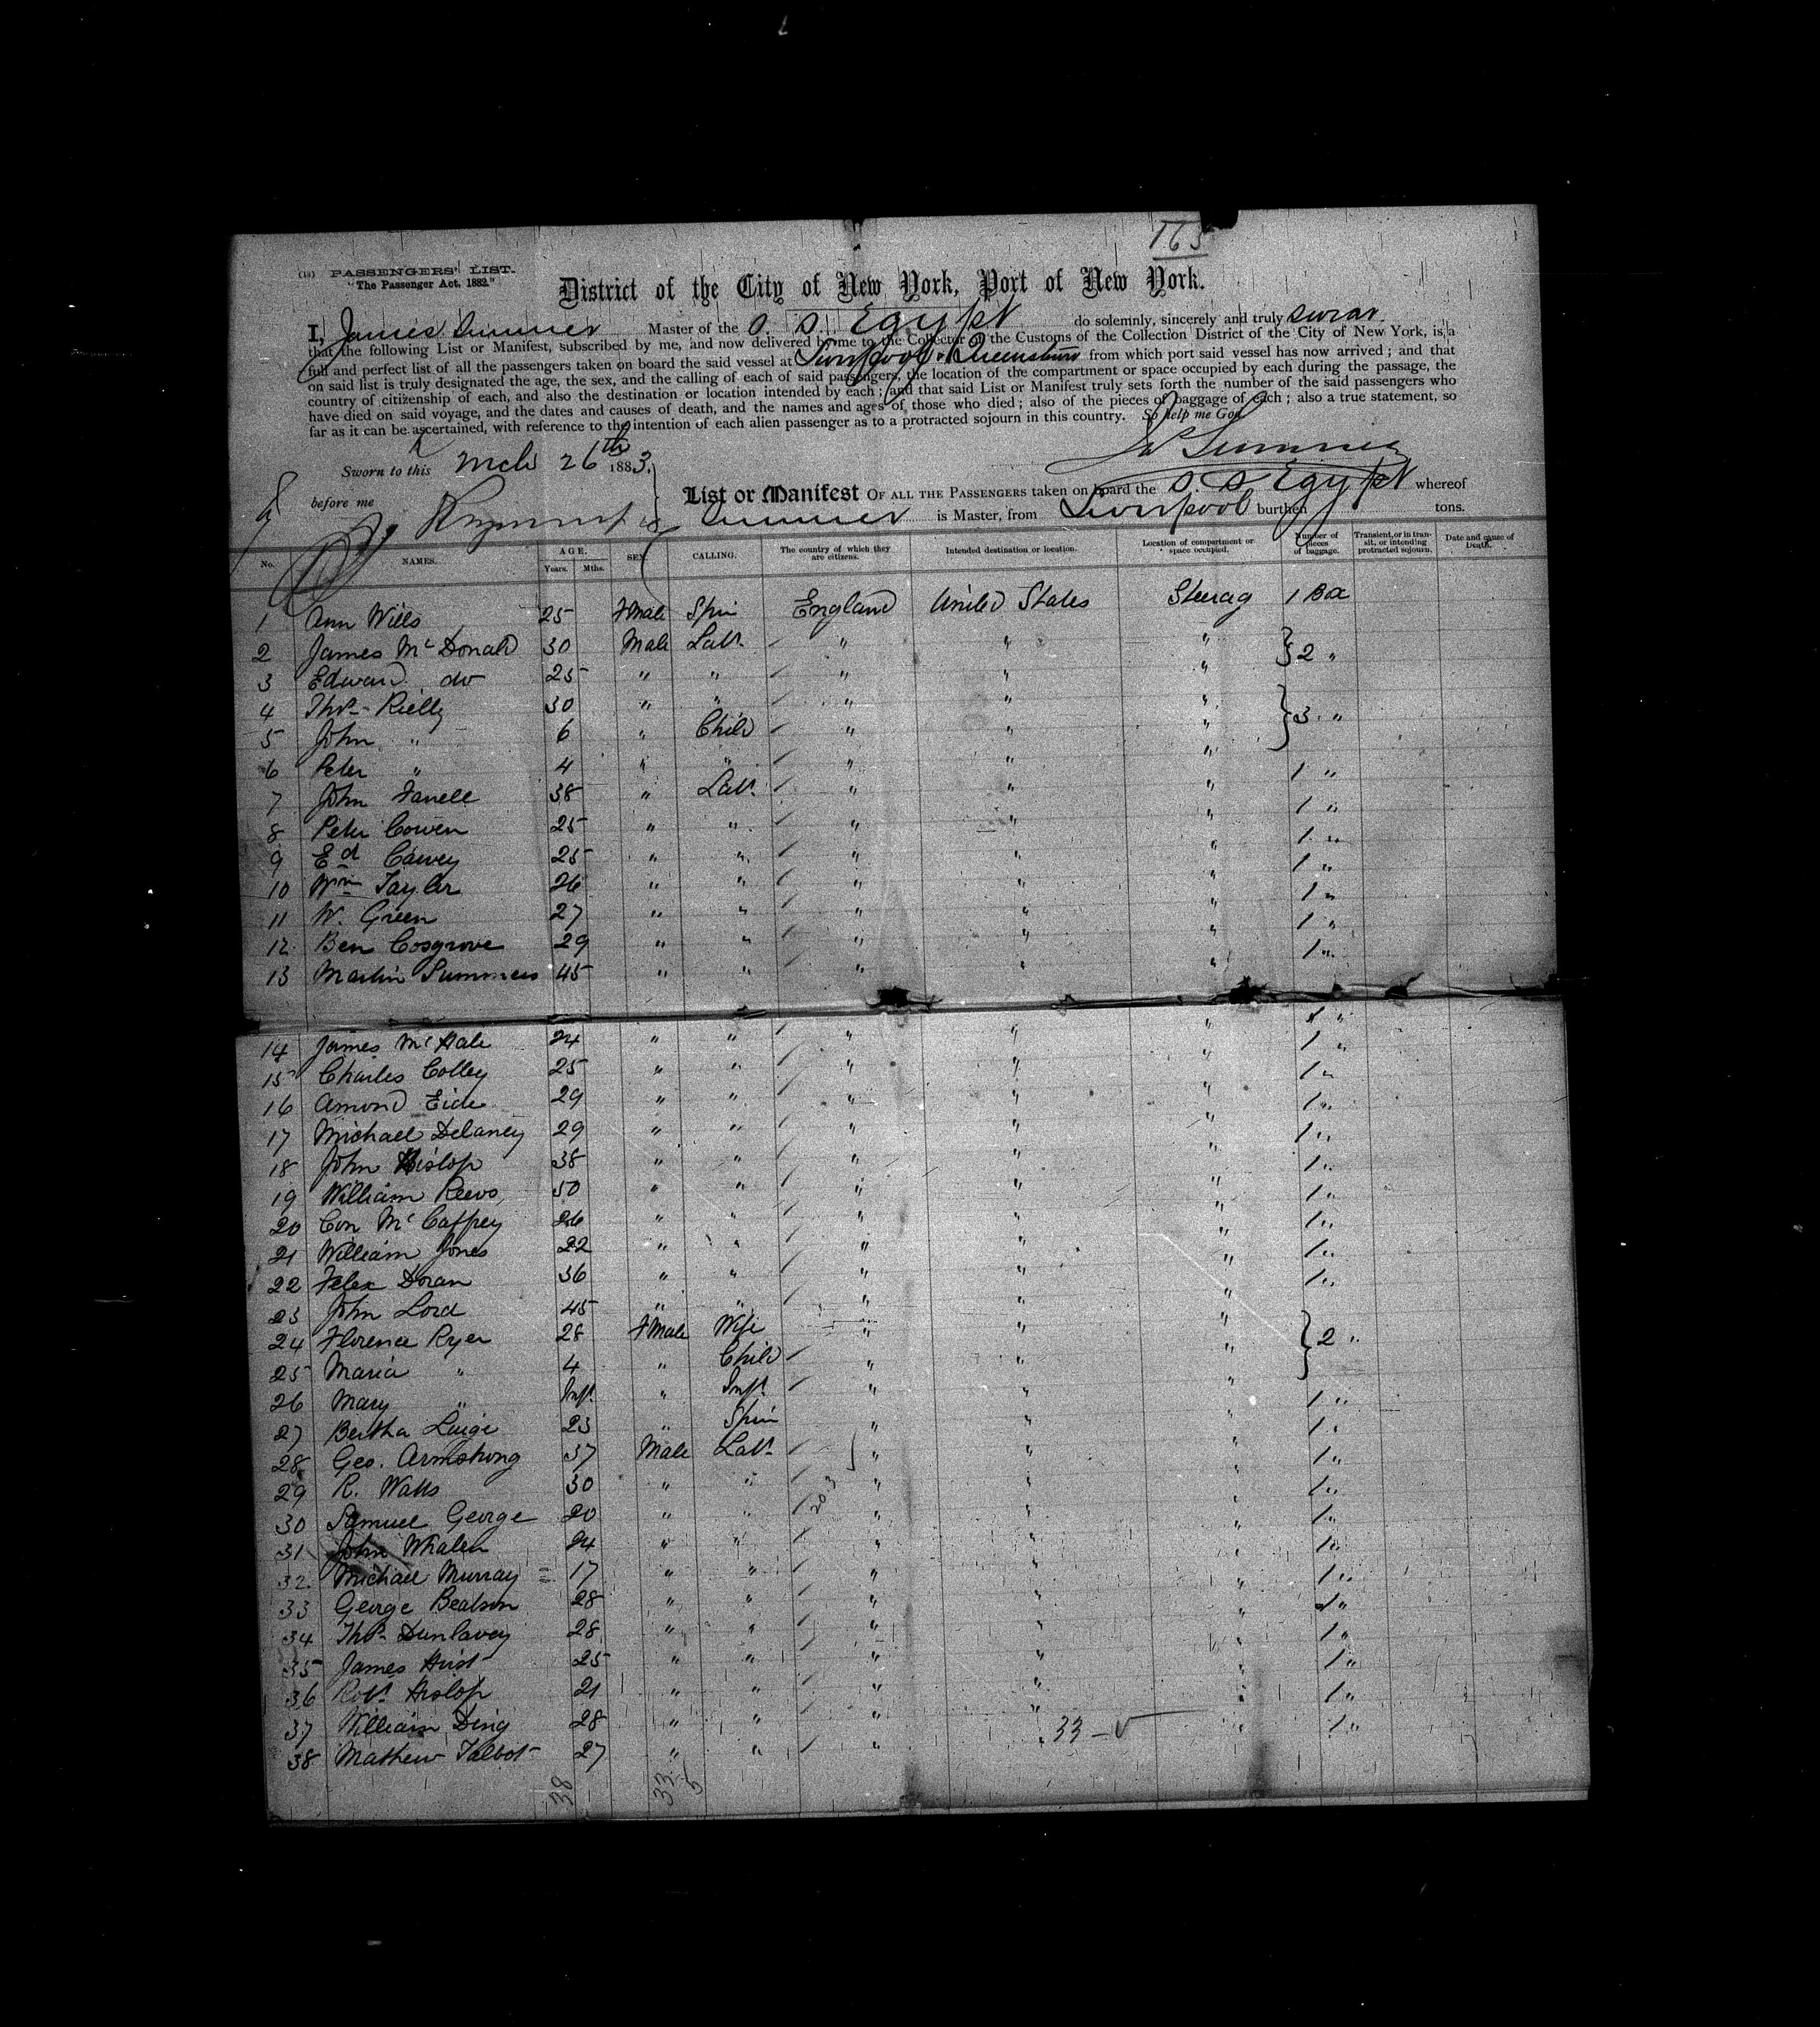 165
(18) PASSENGERS' LIST.
"The Passenger Act, 1882."
District of the City of New York, Port of New York.
I, James Sumner Master of the S. S. Egypt do solemnly, sincerely and truly swear
that the following List or Manifest, subscribed by me, and now delivered by me to the Collector of the Customs of the Collection District of the City of New York, is a
full and perfect list of all the passengers taken on board the said vessel at Liverpool & Queenstown from which port said vessel has now arrived ; and that
on said list is truly designated the age, the sex, and the calling of each of said passengers, the location of the compartment or space occupied by each during the passage, the
country of citizenship of each, and also the destination or location intended by each ; and that said List or Manifest truly sets forth the number of the said passengers who
have died on said voyage, and the dates and causes of death, and the names and ages of those who died ; also of the pieces of baggage of each ; also a true statement, so
far as it can be ascertained, with reference to the intention of each alien passenger as to a protracted sojourn in this country. So help me God.
Jas Sumner
Sworn to this Mch 26th 1883.
before me
List or Manifest OF ALL THE PASSENGERS taken on board the S. S. Egypt whereof
Sumner is Master, from Liverpool burthen tons.
No. NAMES. AGE. Years. Mths. SEX. CALLING. The country of which they are citizens. Intended destination or location. Location of compartment or space occupied. Number of pieces of baggage. Transient, or in transit, or intending protracted sojourn. Date and cause of Death.
1 Ann Wills 25 Fmale Spin England United States Steerag 1 Box
2 James McDonald 30 Male Labr " " " } 2 "
3 Edward do 25 " " " " "
4 Thos Rielly 30 " " " " " } 3 "
5 John " 6 " Child " " "
6 Peter " 4 " " " " "
7 John Farrell 38 " Labr " " " 1 "
8 Peter Cowen 25 " " " " " 1 "
9 Ed Carvey 25 " " " " " 1 "
10 Wm Tayler 26 " " " " " 1 "
11 W. Green 27 " " " " " 1 "
12 Ben Cosgrove 29 " " " " " 1 "
13 Martin Summers 45 " " " " " 1 "
14 James McHale 24 " " " " " 1 "
15 Charles Colley 25 " " " " " 1 "
16 Amond Eide 29 " " " " " 1 "
17 Michael Delaney 29 " " " " " 1 "
18 John Hislop 38 " " " " " 1 "
19 William Reevs 50 " " " " " 1 "
20 Con McCaffrey 26 " " " " " 1 "
21 William Jones 22 " " " " " 1 "
22 Felex Doran 36 " " " " " 1 "
23 John Lord 45 " " " " " 1 "
24 Florence Ryer 28 Fmale Wife " " " } 2 "
25 Maria " 4 " Child " " "
26 Mary " Inft " Inft " " "
27 Bertha Luige 23 " Spin " " " 1 "
28 Geo. Armstrong 37 Male Labr " " " 1 "
29 R. Watts 30 " " " " " 1 "
30 Samuel George 20 " " " " " 1 "
31 John Whalen 24 " " " " " 1 "
32 Michael Murray 17 " " " " " 1 "
33 George Beatson 28 " " " " " 1 "
34 Thos Dunlavey 28 " " " " " 1 "
35 James Hirst 25 " " " " " 1 "
36 Robt Hislop 21 " " " " " 1 "
37 William Ding 28 " " " " " 1 "
38 Mathew Talbot 27 " " " " " 1 "
33
38 33 5